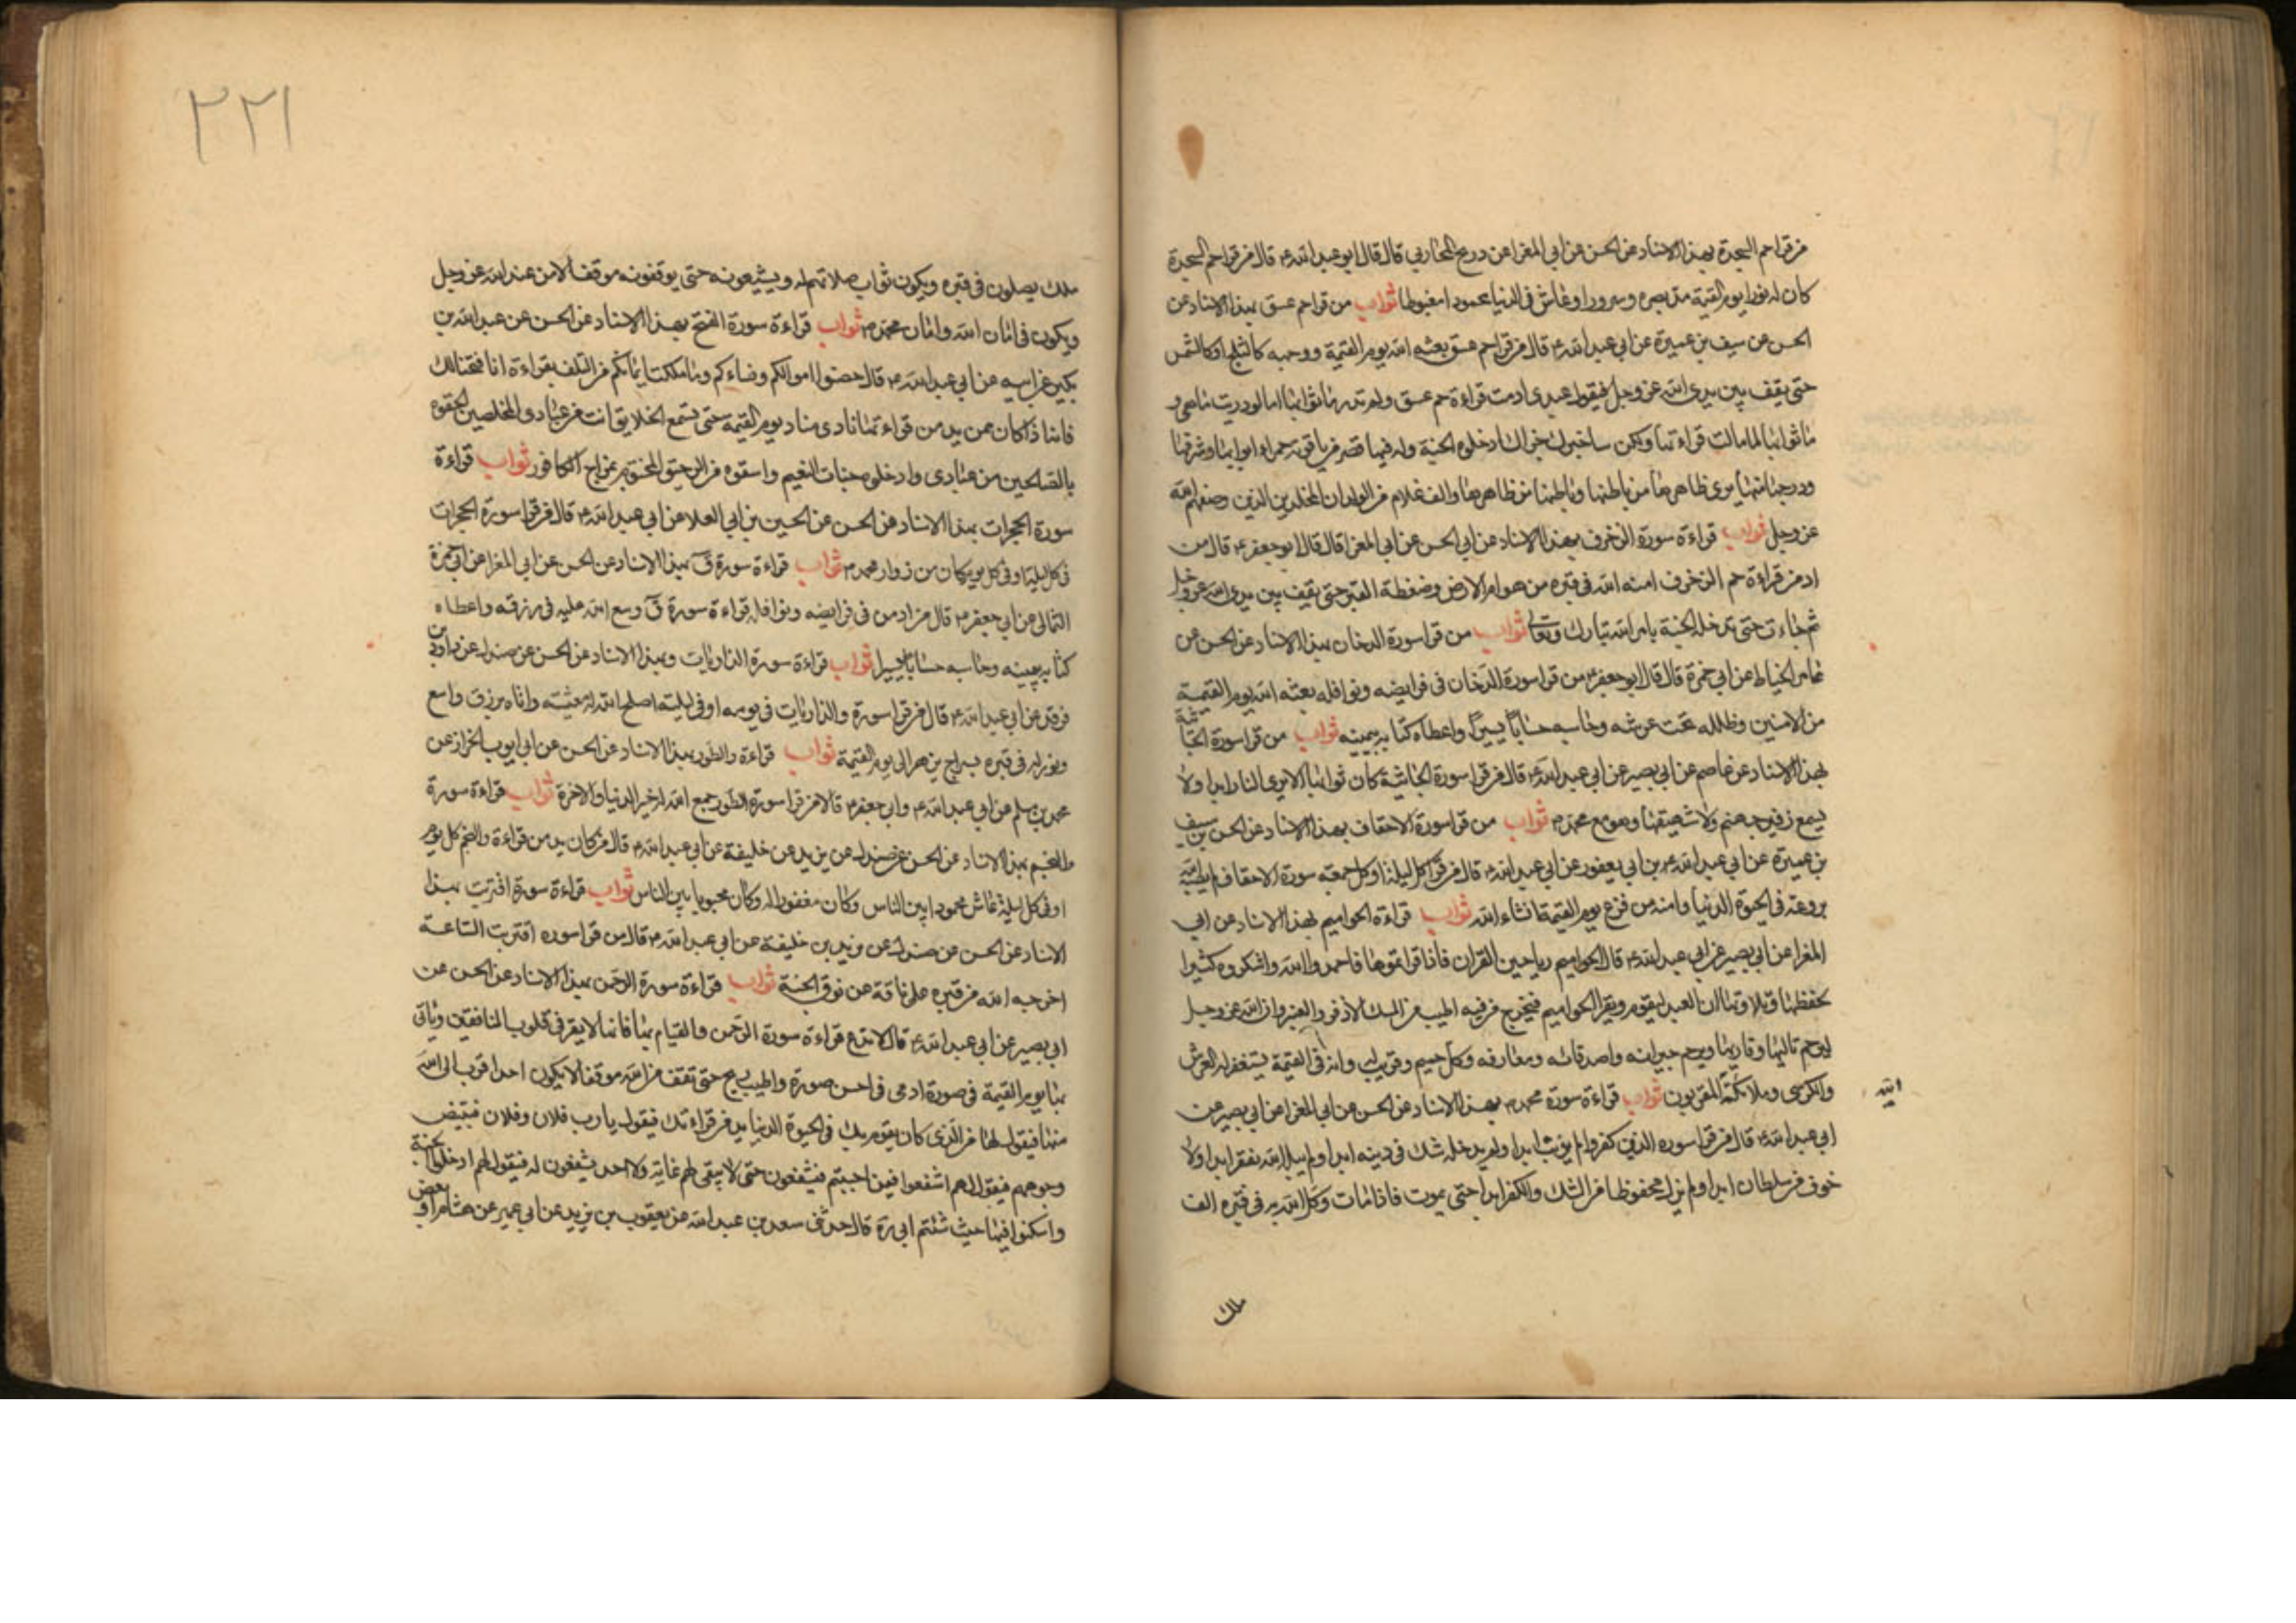 من قرا حم السجدة بهذا الاسناد عن الحسن عن ابي المغرا عن ذريح المحاربي قال قال ابو عبد الله ع قال من قرا حم السجدة
كان له نورا يوم القيمة مد بصره وسرورا وعاش في الدنيا محمودا مغبوطا ثواب من قرا حم عسق بهذا الاسناد عن
الحسن عن سيف بن عميرة عن ابي عبد الله ع قال من قرا حم عسق بعثه الله يوم القيمة ووجهه كالثلج او كالشمس
حتى يقف بين يدي الله عز وجل فيقول عبدي ادمت قراءة حم عسق ولم تدر ما ثوابها اما لو دريت ما هي و
ما ثوابها لما مللت قراءتها ولكن ساخبرك جزاك ادخلوه الجنة وله فيها قصر من ياقوتة حمراء ابوابها وشرفها
ودرجها منها يرى ظاهرها من باطنها وباطنها من ظاهرها والف غلام من الولدان المخلدين الذين وصفهم الله
عز وجل ثواب قراءة سورة الزخرف بهذا الاسناد عن ابي الحسن عن ابي المغرا قال قال ابو جعفر ع قال من
ادمن قراءة حم الزخرف امنه الله في قبره من هوام الارض وضغطة القبر حتى يقف بين يدي الله عز وجل
ثم جاءت حتى تدخله الجنة بامر الله تبارك وتعالى ثواب من قرا سورة الدخان بهذا الاسناد عن الحسن عن
عامر الخياط عن ابي حمزة قال قال ابو جعفر ع من قرا سورة الدخان في فرايضه ونوافله بعثه الله يوم القيمة
من الامنين وظلله تحت عرشه وحاسبه حسابا يسيرا واعطاه كتابه بيمينه ثواب من قرا سورة الجاثية
بهذا الاسناد عن عاصم عن ابي بصير عن ابي عبد الله ع قال من قرا سورة الجاثية كان ثوابها الا يرى النار ابدا ولا
يسمع زفير جهنم ولا شهيقها وهو مع محمد ص ثواب من قرا سورة الاحقاف بهذا الاسناد عن الحسن بن سيف
بن عميرة عن ابي عبد الله ع بن ابي يعفور عن ابي عبد الله ع قال من قرا كل ليلة او كل جمعة سورة الاحقاف لم يصبه الله
بروعة في الحيوة الدنيا وامنه من فزع يوم القيمة انشاء الله ثواب قراءة الحواميم بهذا الاسناد عن ابي
المغرا عن ابي بصير عن ابي عبد الله ع قال الحواميم رياحين القران فاذا قراتموها فاحمدوا الله واشكروه كثيرا
بحفظها وتلاوتها ان العبد ليقوم ويقرا الحواميم فيخرج من فيه اطيب من المسك الاذفر والعنبر وان الله عز وجل
ليرحم تاليها وقاريها ويرحم جيرانه واصدقائه ومعارفه وكل حميم وقريب له وانه في القيمة يستغفر له العرش
والكرسي وملائكة المقربون ثواب قراءة سورة محمد ص بهذا الاسناد عن الحسن عن ابي المغرا عن ابي بصير عن
الله
ابي عبد الله ع قال من قرا سورة الذين كفروا لم يرتب ابدا ولم يدخله شك في دينه ابدا ولم يبله الله بفقر ابدا ولا
خوف من سلطان ابدا ولم يزل محفوظا من الشك والكفر ابدا حتى يموت فاذا مات وكل الله به في قبره الف
ملك
٢٢١
ملك يصلون في قبره ويكون ثواب صلاتهم له ويشيعونه حتى يوقفونه موقف الامن عند الله عز وجل
ويكون في امان الله وامان محمد ص ثواب قراءة سورة الفتح بهذا الاسناد عن الحسن عن عبد الله بن
بكير عن ابيه عن ابي عبد الله ع قال حصنوا اموالكم ونساءكم وما ملكت ايمانكم من التلف بقراءة انا فتحنا لك
فانه اذا كان ممن يدمن قراءتها نادى مناد يوم القيمة حتى يسمع الخلايق انت من عبادي المخلصين الحقوه
بالصالحين من عبادي وادخلوه جنات النعيم واسقوه من الرحيق المختوم بمزاج الكافور ثواب قراءة
سورة الحجرات بهذا الاسناد عن الحسن عن الحسين بن ابي العلا عن ابي عبد الله ع قال من قرا سورة الحجرات
في كل ليلة او في كل يوم كان من زوار محمد ص ثواب قراءة سورة ق بهذا الاسناد عن الحسن عن ابي المغرا عن ابي حمزة
الثمالي عن ابي جعفر ع قال من ادمن في فرايضه ونوافله قراءة سورة ق وسع الله عليه في رزقه واعطاه
كتابه بيمينه وحاسبه حسابا يسيرا ثواب قراءة سورة الذاريات وبهذا الاسناد عن الحسن عن صندل عن داود بن
فرقد عن ابي عبد الله ع قال من قرا سورة والذاريات في يومه او في ليلته اصلح الله له معيشته واتاه برزق واسع
ونور له في قبره بسراج يزهر الى يوم القيمة ثواب قراءة والطور بهذا الاسناد عن الحسن عن ابي ايوب الخزاز عن
محمد بن مسلم عن ابي عبد الله ع وابي جعفر ع قالا من قرا سورة الطور جمع الله له خير الدنيا والاخرة ثواب قراءة سورة
والنجم بهذا الاسناد عن الحسن عن صندل عن يزيد عن خليفة عن ابي عبد الله ع قال من كان يدمن قراءة والنجم كل يوم
او في كل ليلة عاش محمودا بين الناس وكان مغفورا له وكان محبوبا بين الناس ثواب قراءة سورة اقتربت بهذا
الاسناد عن الحسن عن صندل عن يزيد بن خليفة عن ابي عبد الله ع قال من قرا سورة اقتربت الساعة
اخرجه الله من قبره على ناقة من نوق الجنة ثواب قراءة سورة الرحمن بهذا الاسناد عن الحسن عن
ابي بصير عن ابي عبد الله ع قال لا تدع قراءة سورة الرحمن والقيام بها فانها لا يقر في قلوب المنافقين وياتي
بها يوم القيمة في صورة ادمي في احسن صورة واطيب ريح حتى تقف من الله موقفا لا يكون احد اقرب الى الله
منها فيقول لها من الذي كان يقوم بك في الحيوة الدنيا يدمن قراءتك فيقول يا رب فلان وفلان فتبيض
وجوههم فيقول لهم اشفعوا فيمن احببتم فيشفعون حتى لا يبقى لهم غاية ولا احد يشفعون له فيقول لهم ادخلوا الجنة
واسكنوا فيها حيث شئتم ابي ره قال حدثني سعد بن عبد الله عن يعقوب بن يزيد عن ابي عمير عن هشام او بعض